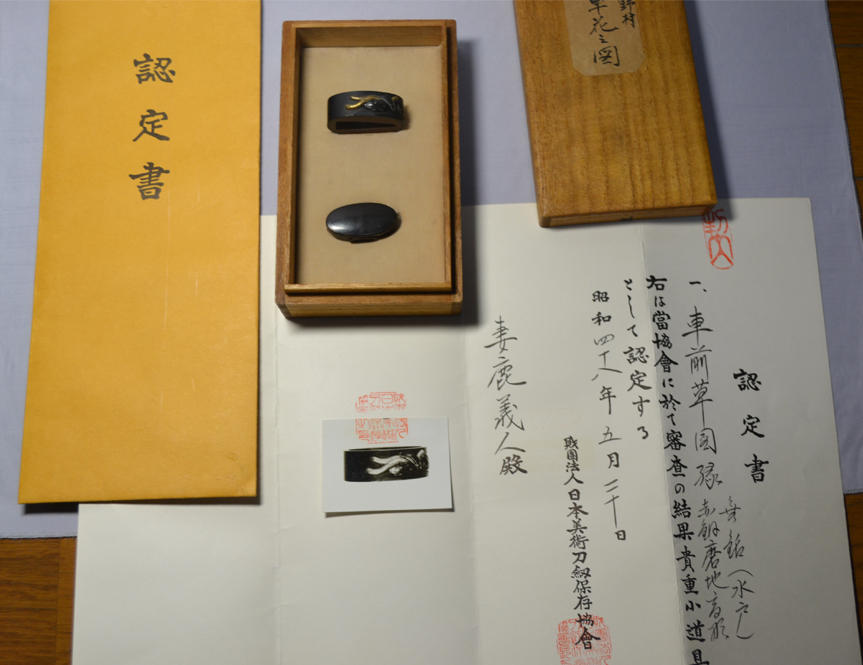 認定書
野村
草花之図
認定書
一、車前草図縁 無銘(水戸)
赤銅磨地高彫
右は當協會に於て審査の結果貴重小道具
として認定する
昭和四十八年五月二十日
財団法人日本美術刀劔保存協會
妻鹿義人殿